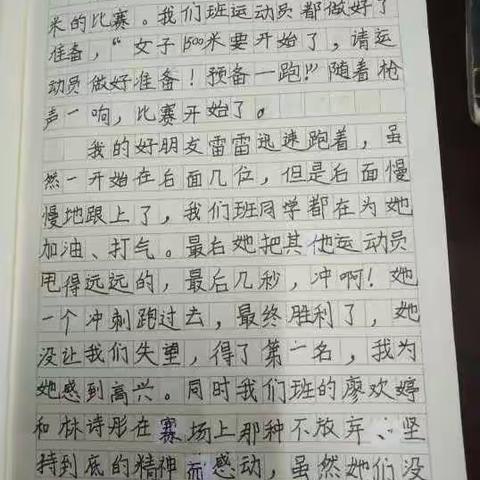 米的比赛。我们班运动员都做好了
准备，“女子1500米要开始了，请运
动员做好准备！预备一跑！”随着枪
声一响，比赛开始了。
我的好朋友雷雷迅速跑着，虽
然一开始在后面几位，但是后面慢
慢地跟上了，我们班同学都在为她
加油、打气。最后她把其他运动员
甩得远远的，最后几秒，冲啊！她
一个冲刺跑过去，最终胜利了，她
没让我们失望，得了第一名，我为
她感到高兴。同时我们班的廖欢婷
和林诗彤在赛场上那种不放弃、坚
持到底的精神而感动，虽然她们没